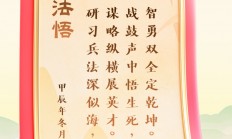 法悟
研习兵法深似海，
谋略纵横展英才。
战鼓声中悟生死，
智勇双全定乾坤。
甲辰年冬月